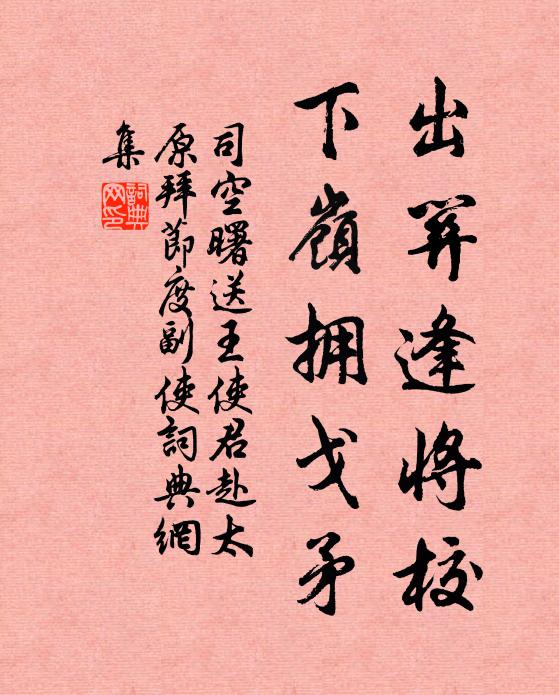 出關逢將校
下嶺擁戈矛
司空曙送王使君赴太
原拜節度副使詞典網
集
詞典
网印